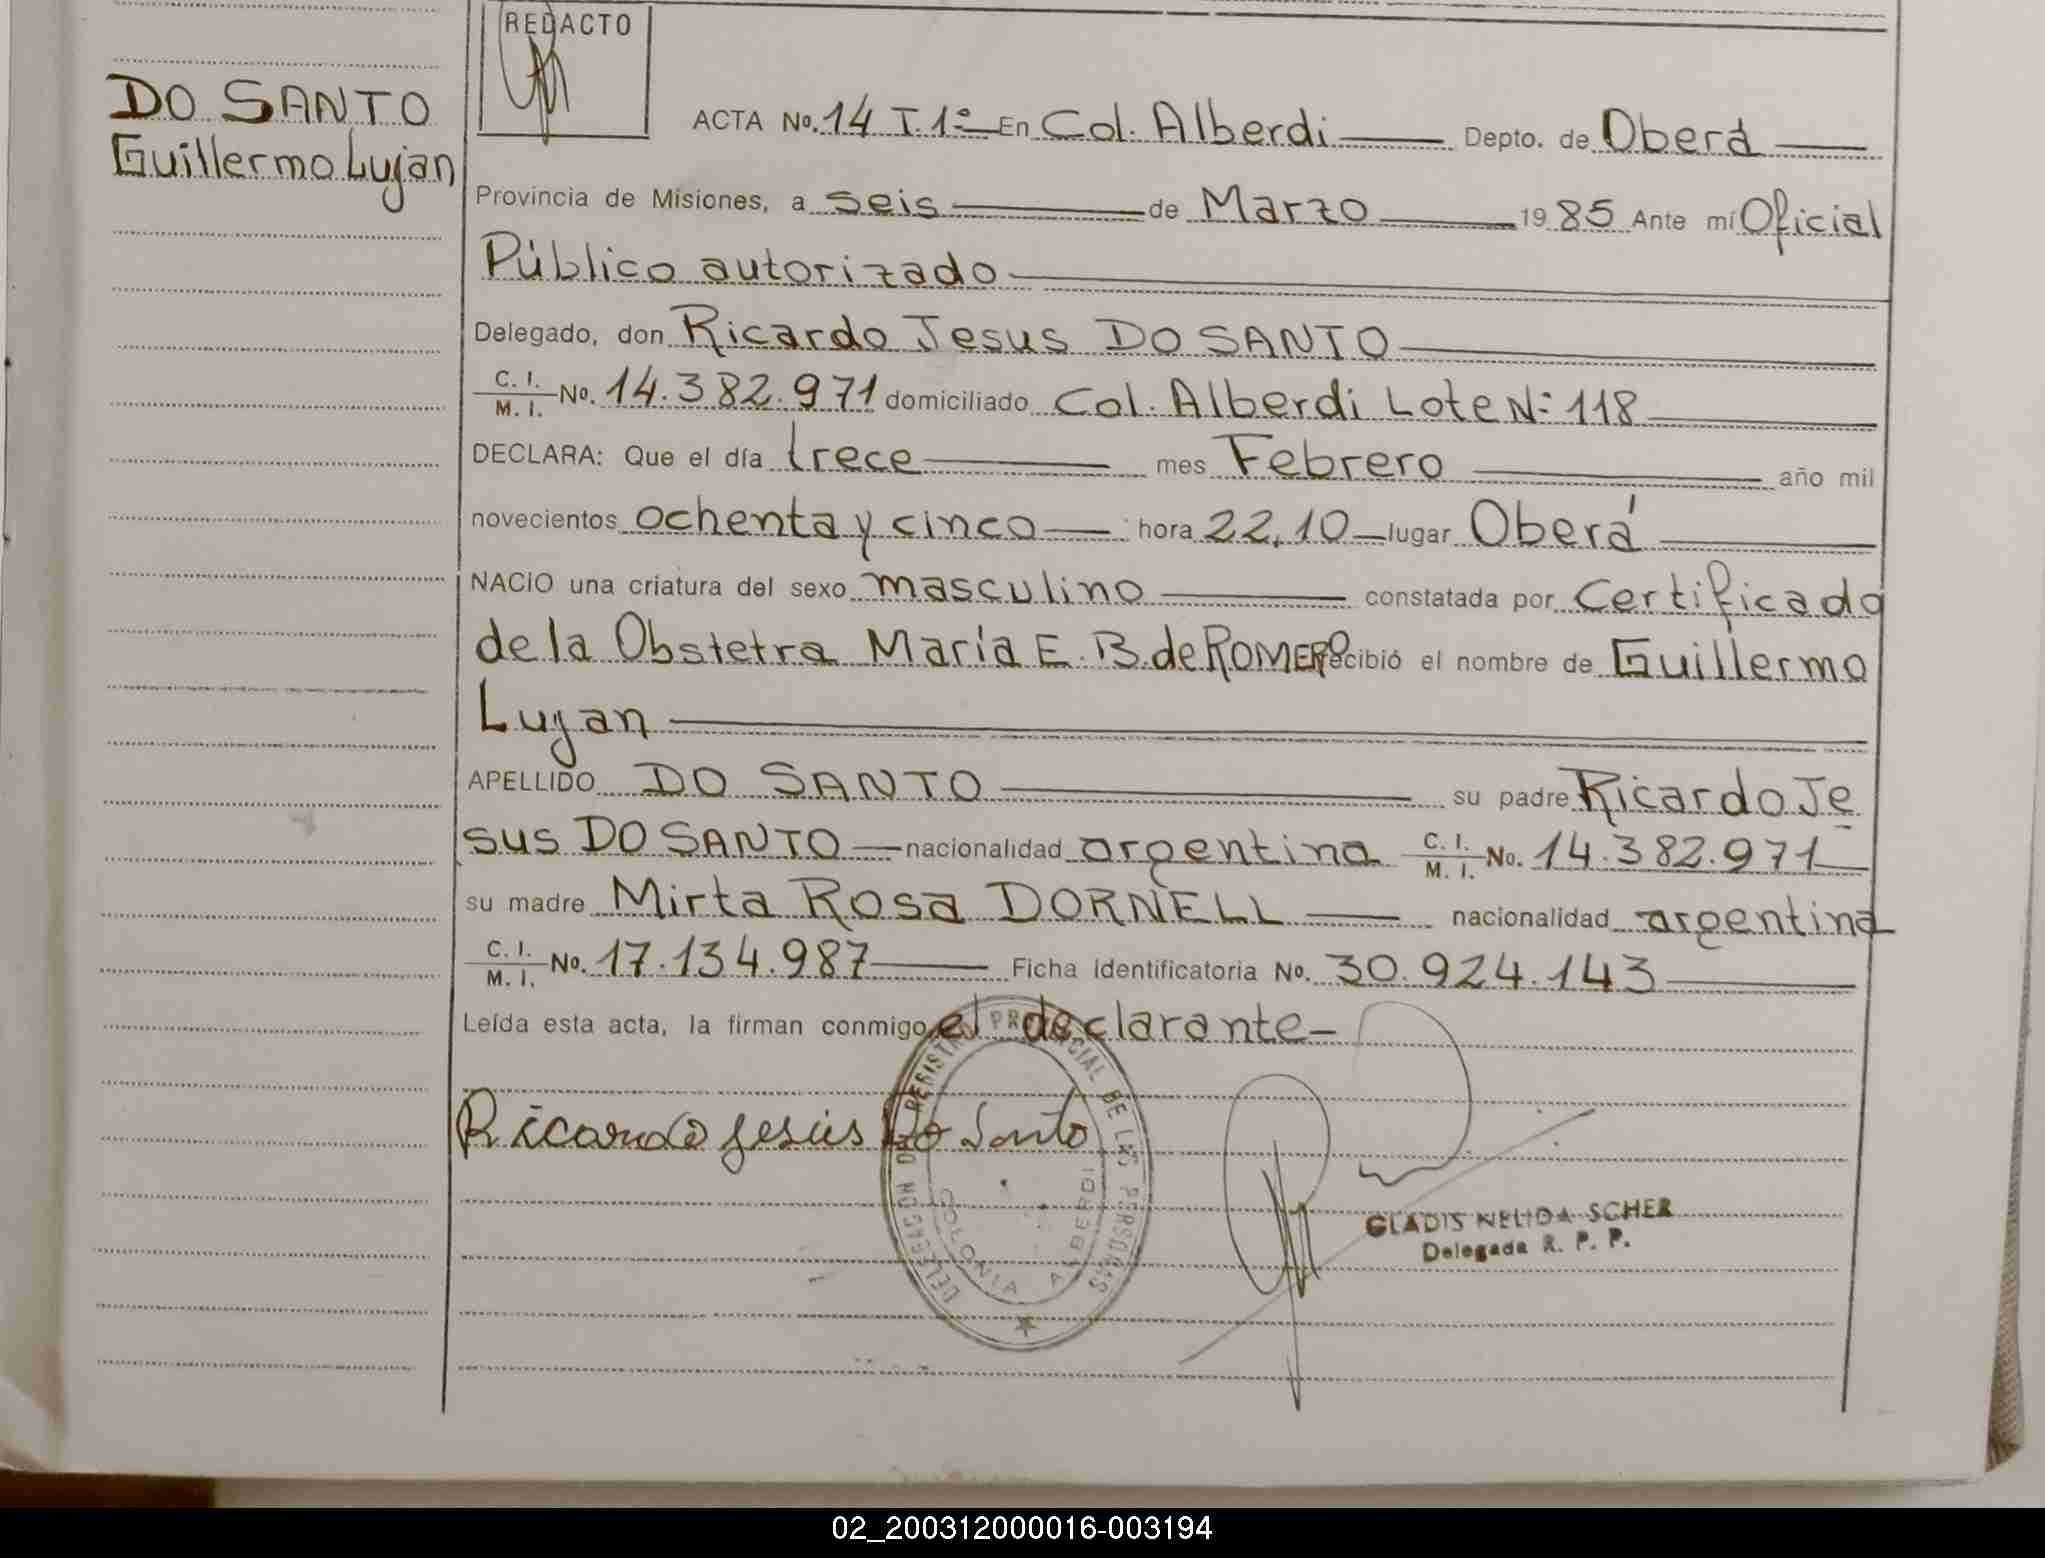 REDACTO
DO SANTO
Guillermo Lujan
ACTA No. 14 T. 1º En Col. Alberdi Depto. de Oberá
Provincia de Misiones, a seis de Marzo 1985 Ante mí Oficial
Público autorizado
Delegado, don Ricardo Jesus DO SANTO
C. I. M. I. No. 14.382.971 domiciliado Col. Alberdi Lote Nº 118
DECLARA: Que el día trece mes Febrero año mil
novecientos ochenta y cinco hora 22,10 lugar Oberá
NACIO una criatura del sexo masculino constatada por Certificado
de la Obstetra María E. B. de ROMERO recibió el nombre de Guillermo
Lujan
APELLIDO DO SANTO su padre Ricardo Je
sus DO SANTO nacionalidad argentina C. I. M. I. No. 14.382.971
su madre Mirta Rosa DORNELL nacionalidad argentina
C. I. M. I. No. 17.134.987 Ficha Identificatoria No. 30.924.143
Leída esta acta, la firman conmigo el declarante
Ricardo Jesús Do Santo
DELEGACION DEL REGISTRO PROVINCIAL DE LAS PERSONAS
COLONIA ALBERDI
GLADIS NELIDA SCHER
Delegada R. P. P.
02_200312000016-003194